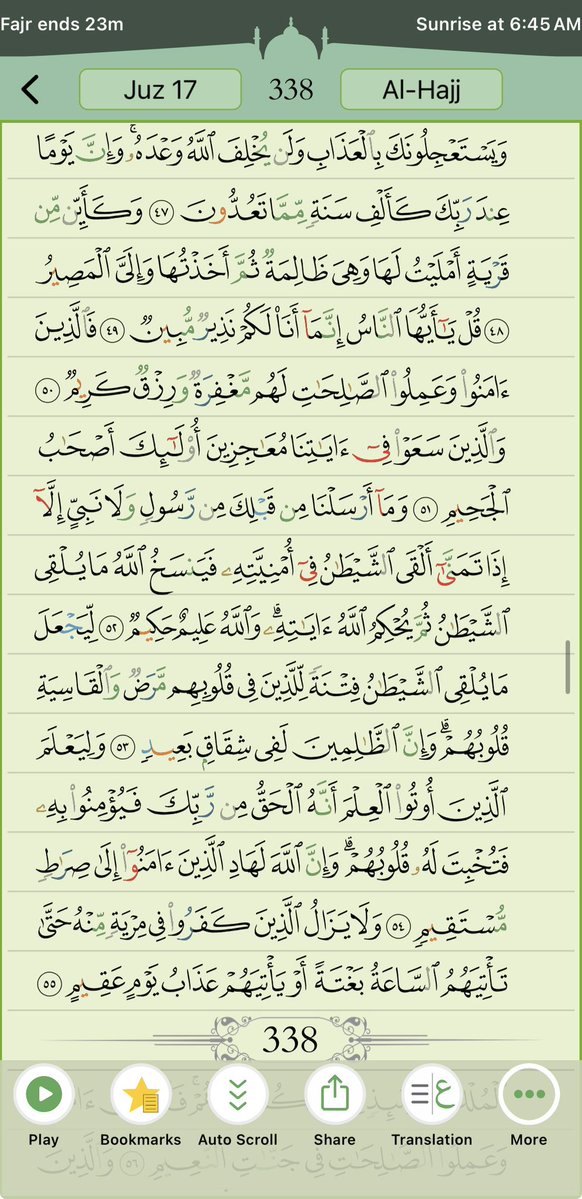 Fajr ends 23m Sunrise at 6:45 AM
Juz 17 338 Al-Hajj
وَيَسْتَعْجِلُونَكَ بِالْعَذَابِ وَلَن يُخْلِفَ اللَّهُ وَعْدَهُۥ ۚ وَإِنَّ يَوْمًا
عِندَ رَبِّكَ كَأَلْفِ سَنَةٍ مِّمَّا تَعُدُّونَ ٤٧ وَكَأَيِّن مِّن
قَرْيَةٍ أَمْلَيْتُ لَهَا وَهِىَ ظَالِمَةٌ ثُمَّ أَخَذْتُهَا وَإِلَىَّ الْمَصِيرُ
٤٨ قُلْ يَـٰٓأَيُّهَا النَّاسُ إِنَّمَآ أَنَا۠ لَكُمْ نَذِيرٌ مُّبِينٌ ٤٩ فَالَّذِينَ
ءَامَنُوا۟ وَعَمِلُوا۟ الصَّـٰلِحَـٰتِ لَهُم مَّغْفِرَةٌ وَرِزْقٌ كَرِيمٌ ٥٠
وَالَّذِينَ سَعَوْا۟ فِىٓ ءَايَـٰتِنَا مُعَـٰجِزِينَ أُو۟لَـٰٓئِكَ أَصْحَـٰبُ
الْجَحِيمِ ٥١ وَمَآ أَرْسَلْنَا مِن قَبْلِكَ مِن رَّسُولٍ وَلَا نَبِىٍّ إِلَّآ
إِذَا تَمَنَّىٰٓ أَلْقَى الشَّيْطَـٰنُ فِىٓ أُمْنِيَّتِهِۦ فَيَنسَخُ اللَّهُ مَا يُلْقِى
الشَّيْطَـٰنُ ثُمَّ يُحْكِمُ اللَّهُ ءَايَـٰتِهِۦ ۗ وَاللَّهُ عَلِيمٌ حَكِيمٌ ٥٢ لِّيَجْعَلَ
مَا يُلْقِى الشَّيْطَـٰنُ فِتْنَةً لِّلَّذِينَ فِى قُلُوبِهِم مَّرَضٌ وَالْقَاسِيَةِ
قُلُوبُهُمْ ۗ وَإِنَّ الظَّـٰلِمِينَ لَفِى شِقَاقٍ بَعِيدٍ ٥٣ وَلِيَعْلَمَ
الَّذِينَ أُوتُوا۟ الْعِلْمَ أَنَّهُ الْحَقُّ مِن رَّبِّكَ فَيُؤْمِنُوا۟ بِهِۦ
فَتُخْبِتَ لَهُۥ قُلُوبُهُمْ ۗ وَإِنَّ اللَّهَ لَهَادِ الَّذِينَ ءَامَنُوٓا۟ إِلَىٰ صِرَٰطٍ
مُّسْتَقِيمٍ ٥٤ وَلَا يَزَالُ الَّذِينَ كَفَرُوا۟ فِى مِرْيَةٍ مِّنْهُ حَتَّىٰ
تَأْتِيَهُمُ السَّاعَةُ بَغْتَةً أَوْ يَأْتِيَهُمْ عَذَابُ يَوْمٍ عَقِيمٍ ٥٥
338
Play Bookmarks Auto Scroll Share Translation More
وَعَمِلُوا۟ الصَّـٰلِحَـٰتِ فِى جَنَّـٰتِ النَّعِيمِ ٥٦ وَالَّذِينَ